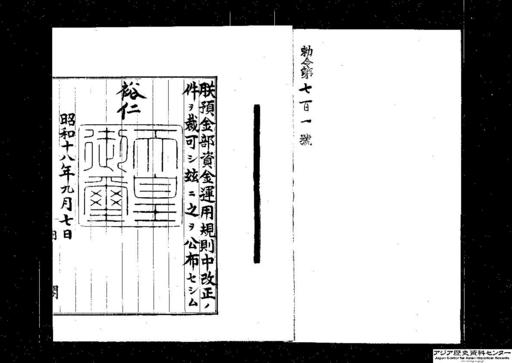 勅令第七百一號
朕預金部資金運用規則中改正ノ
件ヲ裁可シ玆ニ之ヲ公布セシム
裕仁
天皇御璽
昭和十八年九月七日
アジア歴史資料センター
Japan Center for Asian Historical Records